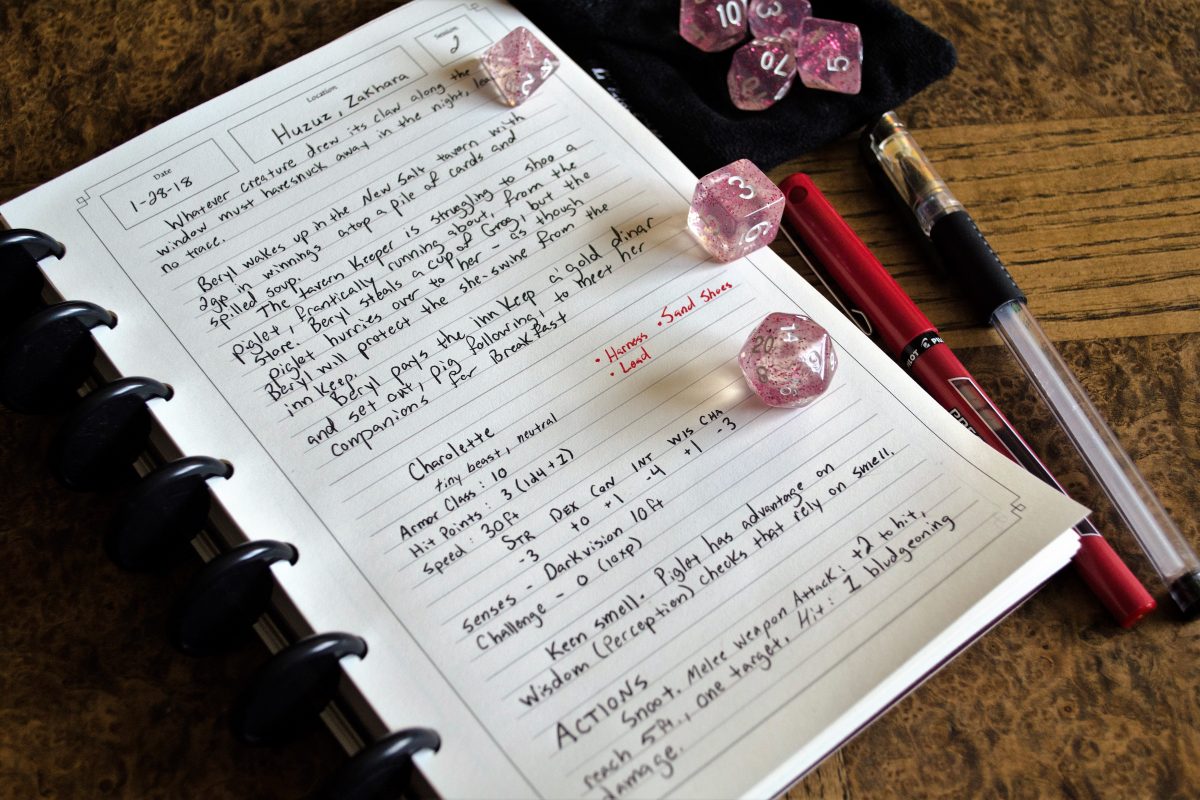 Session
2
Location
Huzuz, Zakhara
Date
1-28-18
Whatever creature drew its claw along the
window must have snuck away in the night,
no trace.
Beryl wakes up in the New Salt tavern with
2gp in winnings atop a pile of cards and
spilled soup.
The tavern Keeper is struggling to shoo a
Piglet, frantically running about, from the
store. Beryl steals a cup of Grog, but the
Piglet hurries over to her - as though
Beryl will protect the she-swine from the
inn Keep.
Beryl pays the inn Keep a gold dinar
and set out, pig following, to meet her
companions for BreakFast
• Harness • Sand Shoes
• Lead
Charolette
tiny beast, neutral
Armor Class: 10
Hit Points: 3 (1d4+1)
Speed: 30ft
STR DEX CON INT WIS CHA
-3 +0 +1 -4 +1 -3
Senses - Darkvision 10ft
Challenge - 0 (10xp)
Keen smell. Piglet has advantage on
Wisdom (Perception) checks that rely on smell.
ACTIONS
Snoot. Melee weapon Attack: +2 to hit,
reach 5ft., one target, Hit: 1 bludgeoning
damage.
10
3
70
5
2
4
3
6
20
14